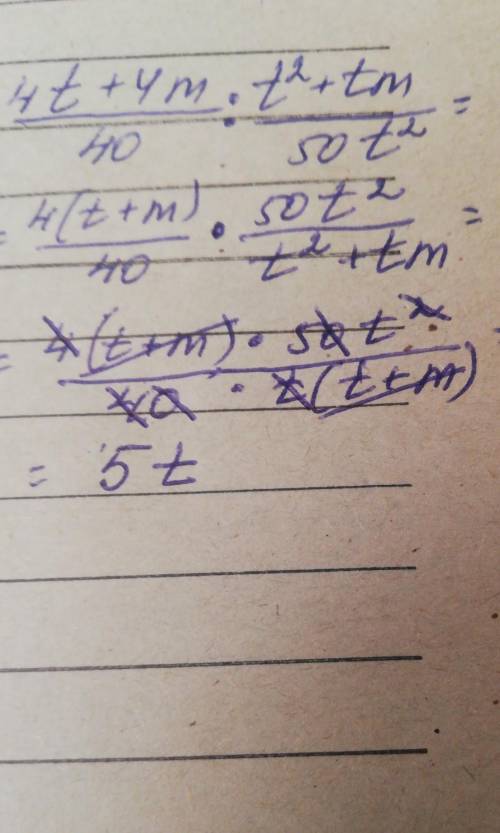 (4t + 4m)/40 : (t² + tm)/(50t²) =
= 4(t + m)/40 · 50t²/(t² + tm) =
= (4(t + m) · 50t²)/(40 · t(t + m)) =
= 5t